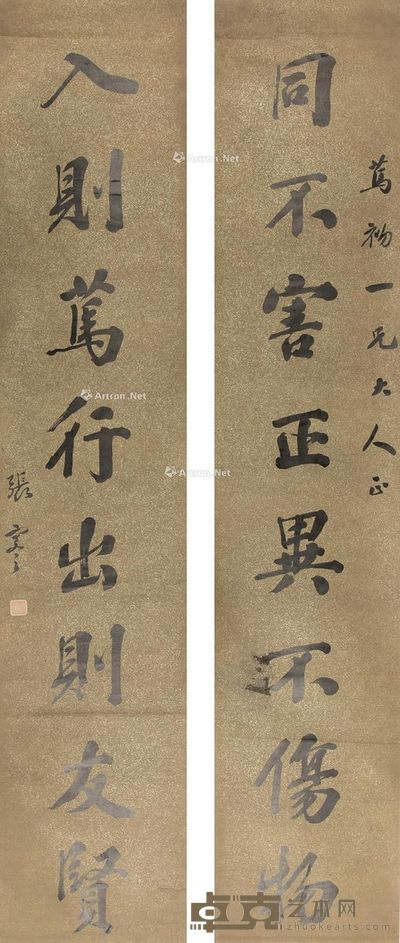 篤初一兄大人正
同不害正異不傷物
入則篤行出則友賢
張
Artron.Net
Artron.Net
Artron.Net
Artron.Net
卓克艺术网
zhuokearts.com